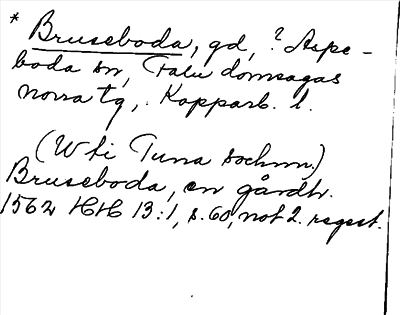 * Bruseboda, gd, ? Aspe-
boda sn, Falu domsagas
norra tg, Kopparb. l.
(W ti Tuna sochnn.)
Bruseboda, en gårdh.
1562 HH 13:1, s. 60, not 2. regest.